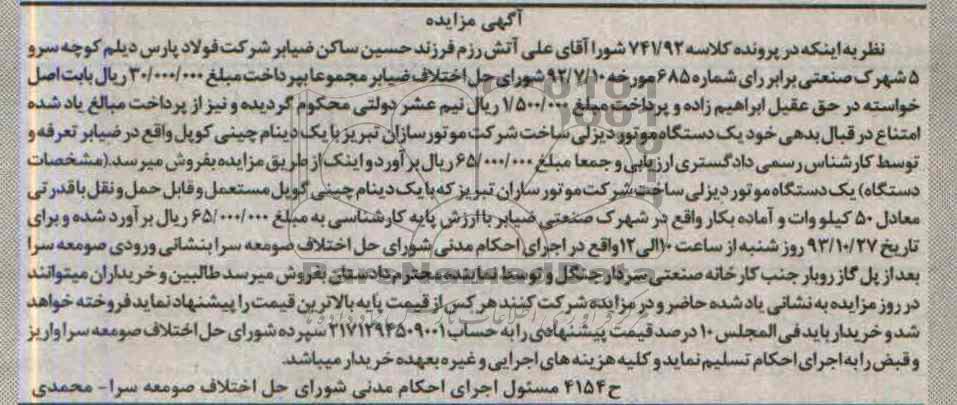 آگهی مزایده
نظر به اینکه در پرونده کلاسه ۷۴۱/۹۲ شورا آقای علی آتش رزم فرزند حسین ساکن ضیابر شرکت فولاد پارس دیلم کوچه سرو
۵ شهرک صنعتی برابر رای شماره ۶۸۵ مورخه ۹۲/۷/۱۰ شورای حل اختلاف ضیابر مجموعا بپرداخت مبلغ ۳۰/۰۰۰/۰۰۰ ریال بابت اصل
خواسته در حق عقیل ابراهیم زاده و پرداخت مبلغ ۱/۵۰۰/۰۰۰ ریال نیم عشر دولتی محکوم گردیده و نیز از پرداخت مبالغ یاد شده
امتناع در قبال بدهی خود یک دستگاه موتور دیزلی ساخت شرکت موتور سازان تبریز با یک دینام چینی کوپل واقع در ضیابر تعرفه و
توسط کارشناس رسمی دادگستری ارزیابی و جمعا مبلغ ۶۵/۰۰۰/۰۰۰ ریال بر آورد و اینک از طریق مزایده بفروش میرسد.(مشخصات
دستگاه) یک دستگاه موتور دیزلی ساخت شرکت موتور سازان تبریز که با یک دینام چینی کوپل مستعمل و قابل حمل و نقل با قدرتی
معادل ۵۰ کیلو وات و آماده بکار واقع در شهرک صنعتی ضیابر با ارزش پایه کارشناسی به مبلغ ۶۵/۰۰۰/۰۰۰ ریال بر آورد شده و برای
تاریخ ۹۳/۱۰/۲۷ روز شنبه از ساعت ۱۰ الی ۱۲ واقع در اجرای احکام مدنی شورای حل اختلاف صومعه سرا بنشانی ورودی صومعه سرا
بعد از پل گاز روبار جنب کارخانه صنعتی سردار جنگل و توسط نماینده محترم دادستان بفروش میرسد طالبین و خریداران میتوانند
در روز مزایده به نشانی یاد شده حاضر و در مزایده شرکت کنند هر کس از قیمت پایه بالاترین قیمت را پیشنهاد نماید فروخته خواهد
شد و خریدار باید فی المجلس ۱۰ درصد قیمت پیشنهادی را به حساب ۲۱۷۱۲۹۴۵۰۹۰۰۱ سپرده شورای حل اختلاف صومعه سرا واریز
و قبض را به اجرای احکام تسلیم نماید و کلیه هزینه های اجرایی و غیره بعهده خریدار میباشد.
ح ۴۱۵۴ مسئول اجرای احکام مدنی شورای حل اختلاف صومعه سرا- محمدی